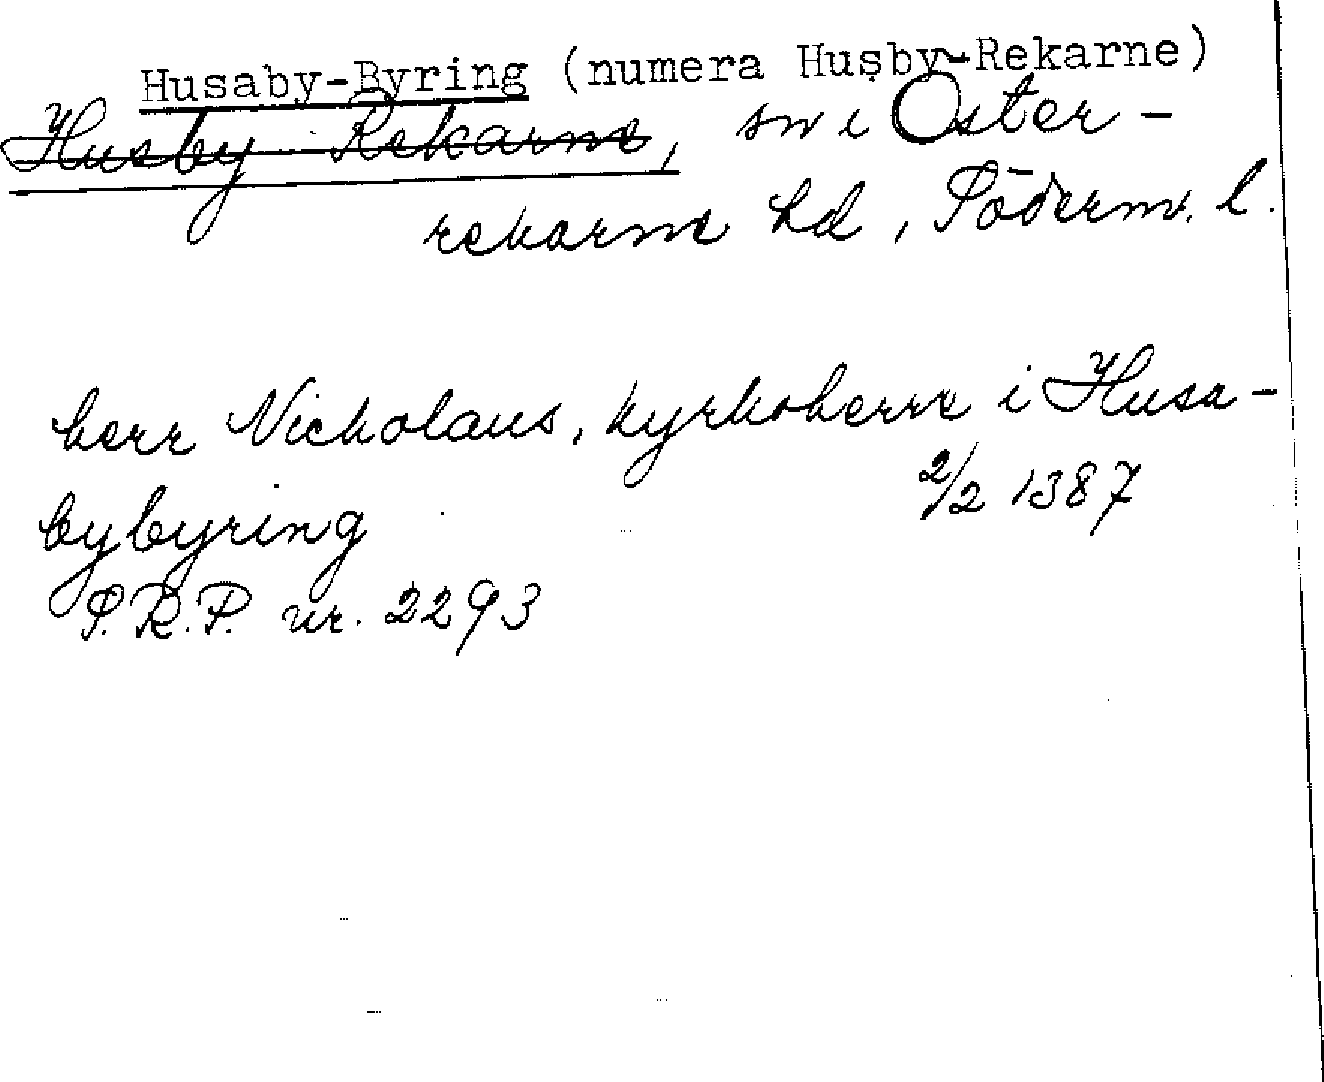 Husaby-Byring (numera Husby-Rekarne)
Husby Rekarne, sn i Öster-
rekarne hd, Söderm. l.
herr Nickolaus, kyrkoherre i Husa-
bybyring 2/2 1387
S.R.P. nr. 2293